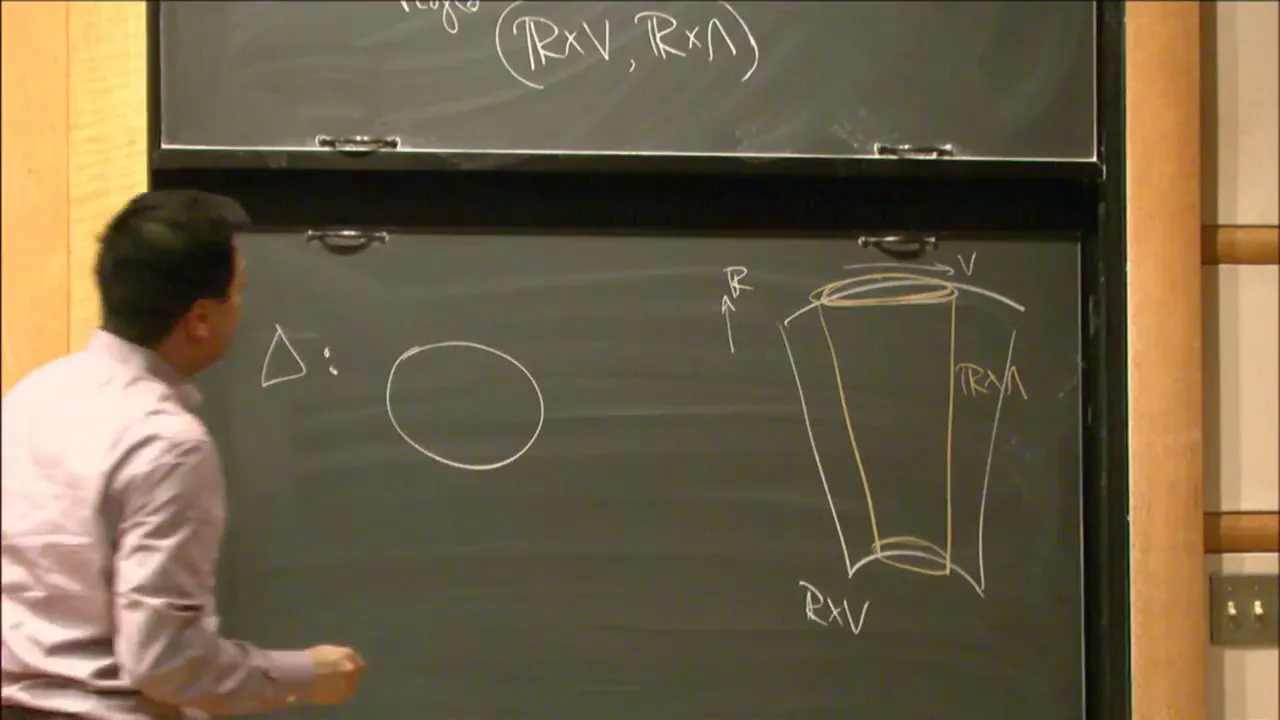 (ℝ×V, ℝ×Λ)
Δ:
ℝ
V
ℝ×Λ
ℝ×V